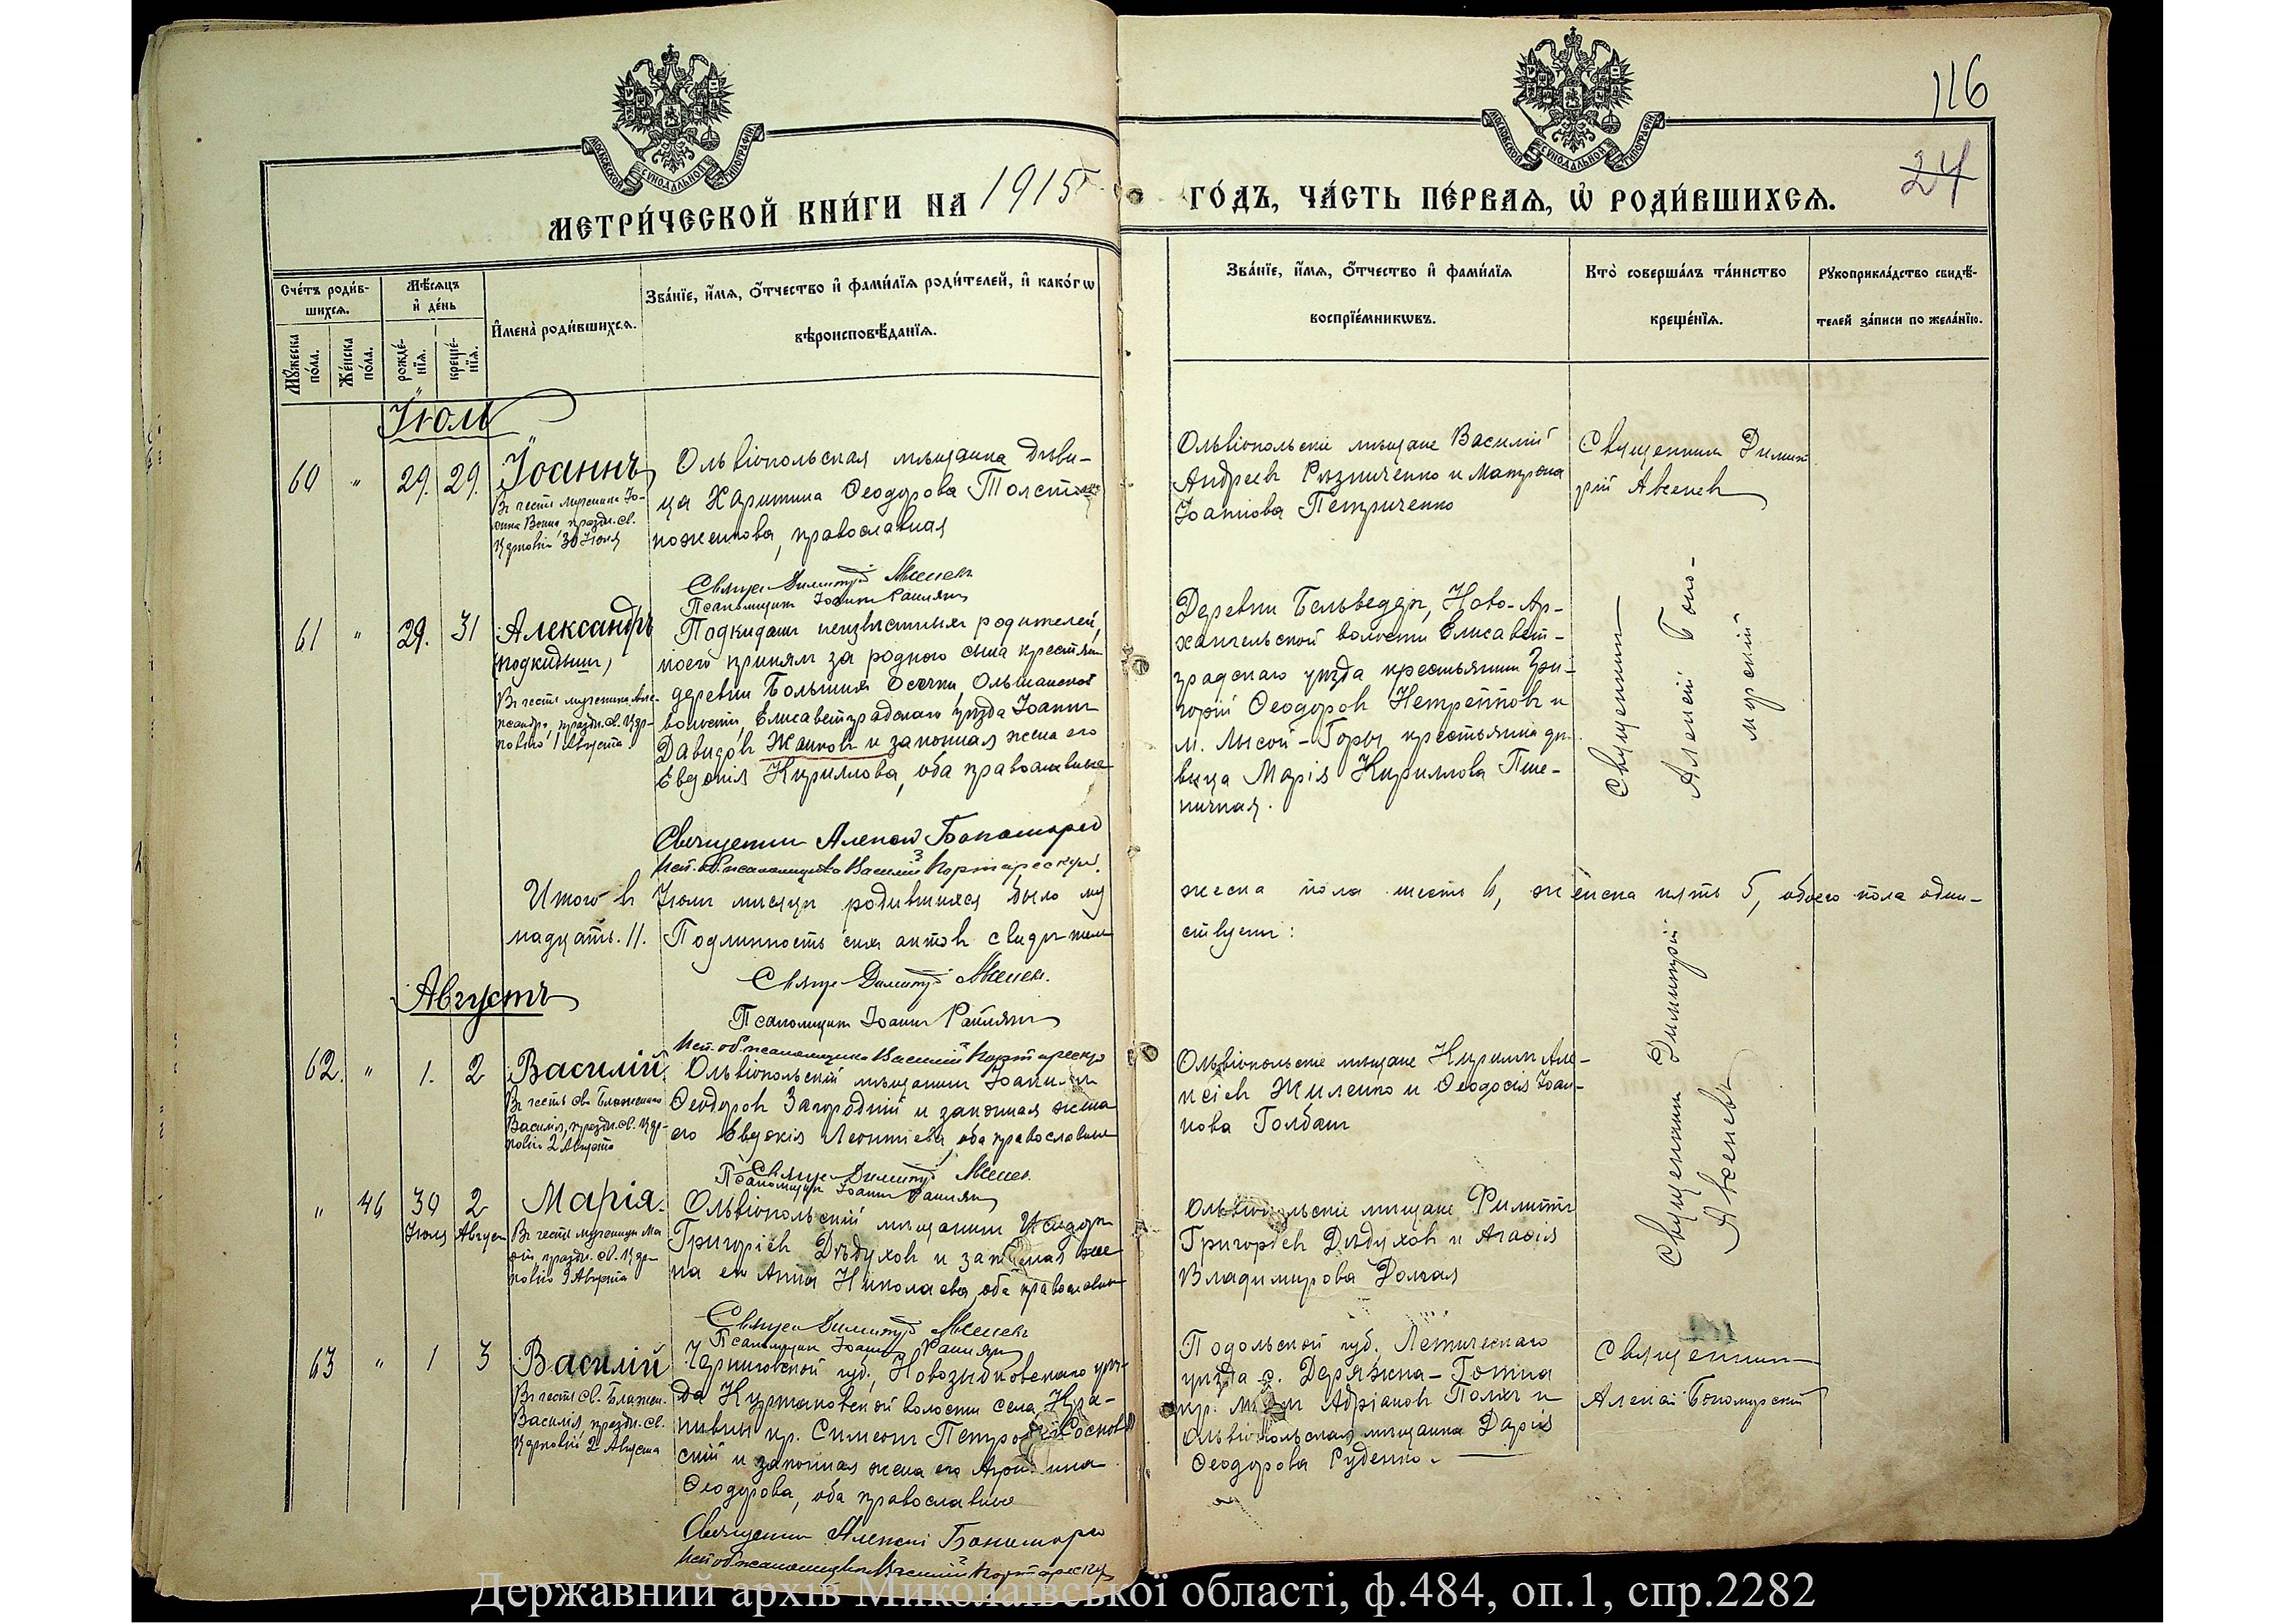 116
24
МЕТРИ́ЧЕСКОЙ КНИ́ГИ НА 1915
ГО́ДЪ, ЧА́СТЬ ПЕ́РВАѦ, Ѡ҆ РОДИ́ВШИХСѦ.
МОСКОВСКОЙ СѴНОДАЛЬНОЙ ТИПОГРАФІИ
МОСКОВСКОЙ СѴНОДАЛЬНОЙ ТИПОГРАФІИ
Сче́тъ роди́в-
шихсѧ.
Мꙋ́жеска по́ла.
Же́нска по́ла.
Мѣ́сѧцъ
и҆ де́нь
рожде́-
нїѧ.
креще́-
нїѧ.
И҆мена̀ роди́вшихсѧ.
Зва́нїе, и҆́мѧ, ѻ҆́тчество и҆ фами́лїѧ роди́телей, и҆ како́гѡ
вѣроисповѣ́данїѧ.
Зва́нїе, и҆́мѧ, ѻ҆́тчество и҆ фами́лїѧ
воспрїе́мникѡвъ.
Кто̀ соверша́лъ та́инство
креще́нїѧ.
Рꙋкоприкла́дство свидѣ́-
телей за́писи по жела́нїю.
Іюль
60 " 29. 29. Іоаннъ
Въ честь мученика Іо-
анна Воина, праздн. св.
Церковію 30 Іюля
Ольвіопольская мѣщанка дѣви-
ца Харитина Ѳеодорова Толсто-
ноженкова, православная
Свящ. Димитрій Авсенев
Псаломщик Іоанн Раилян
Ольвіопольскіе мѣщане Василій
Андреев Рѣзниченко и Матрона
Іоаннова Петриченко
Священник Димит-
рій Авсенев
61 " 29. 31 Александръ
(подкидыш)
Въ честь мученика Але-
ксандра, праздн. св. Цер-
ковію 1 Августа
Подкидыш неизвѣстных родителей,
коего принял за родного сына крестьян.
деревни Большия Осечки, Ольшанской
волости, Елисаветградскаго уѣзда Іоанн
Давидов Жалков и законная жена его
Евдокія Кириллова, оба православные
Священник Алексій Бокоморскій
Исп. об. псаломщика Василій Кортареску
Деревни Бельведер, Ново-Ар-
хангельской волости Елисавет-
градскаго уѣзда крестьянин Гри-
горій Ѳеодоров Нетреттов и
м. Лысой-Горы, крестьянка дѣ-
вица Марія Кириллова Пше-
ничная.
Священник
Алексій Боко-
мурскій
Итого в Іюле месяце родившихся было му
жеска пола шесть 6, женска пять 5, обоего пола один-
надцать. 11. Подлинность сих актов свидетель
ствуем:
Свящ. Димитрій Авсенев.
Псаломщик Іоанн Раилян
Исп. об. псаломщика Василій Кортареску
Августъ
62. " 1. 2 Василій.
Въ честь св. Блаженнаго
Василія, праздн. св. Цер-
ковію 2 Августа
Ольвіопольскій мѣщанин Іоанн
Ѳеодоров Загородній и законная жена
его Евдокія Леонтіева, оба православные
Свящ. Димитрій Авсенев.
Псаломщик Іоанн Раилян
Ольвіопольскіе мѣщане Кирилл Але-
ксіев Жиленко и Ѳеодосія Іоан-
нова Голбан
Священник Димитрій
Авсеневъ
" 46 30 2 Марія.
Іюля Август
Въ честь мученицы Ма-
ріи, праздн. св. Цер-
ковію 9 Августа
Ольвіопольскій мѣщанин Исидор
Григоріев Дѣдухов и законная же
на его Анна Николаева, оба православные
Свящ. Димитрій Авсенев
Псаломщик Іоанн Раилян
Ольвіопольскіе мѣщане Филипп
Григоріев Дѣдухов и Агафія
Владимирова Долгая
63 " 1 3 Василій
Въ честь св. Блажен.
Василія, праздн. св.
Церковію 2 Августа
Черниговской губ., Новозыбковскаго уѣз-
да Курмановской волости села
кр. Симеон Петров
скій и законная жена его
Ѳеодорова, оба православные
Священник Алексій Бокоморскій
Исп. об. псаломщика Василій Кортареску
Подольской губ. Летичевскаго
уѣзда с. Деражна-Готна
кр. Адріанов и
Ольвіопольская мѣщанка Дарія
Ѳеодорова Руденко.
Священник
Алексій Бокомурскій
Державний архів Миколаївської області, ф.484, оп.1, спр.2282